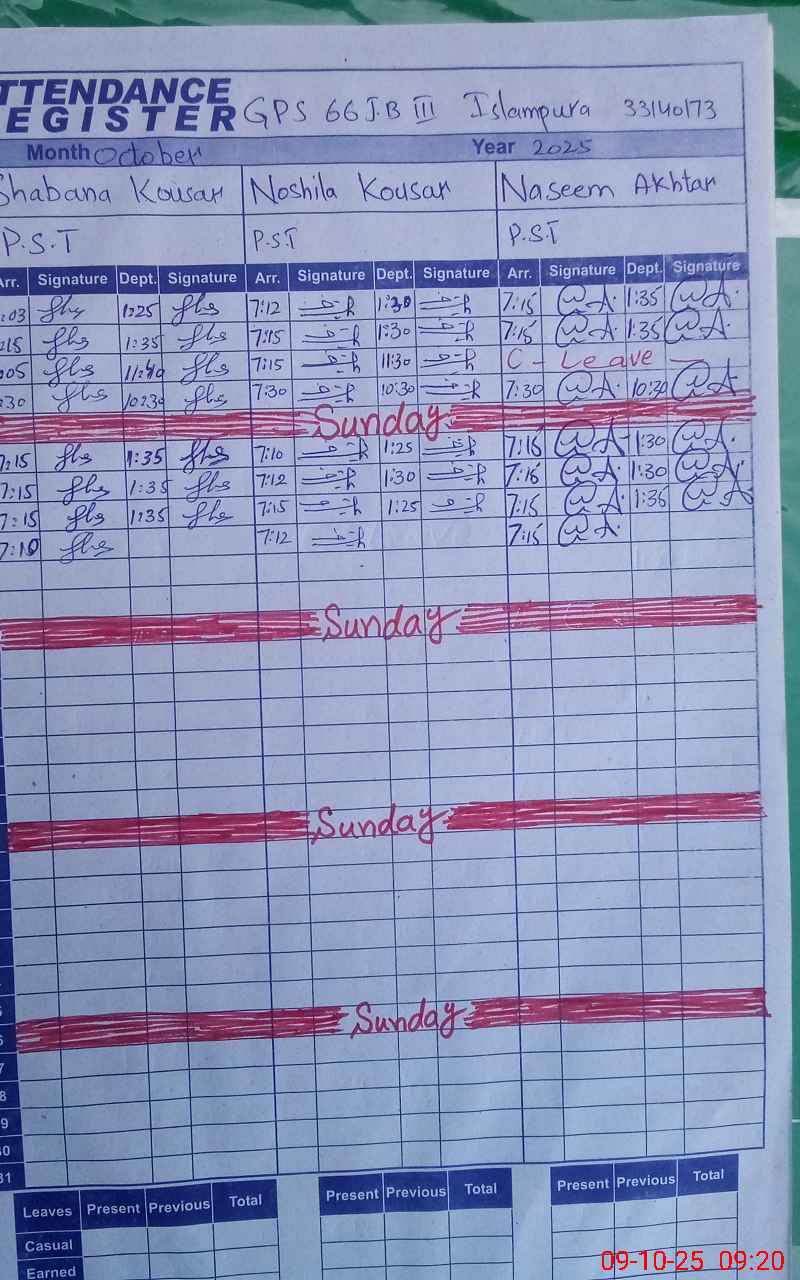 TTENDANCE
EGISTER GPS 66 J.B III Islampura 33140173
Month October Year 2025
Shabana Kousar Noshila Kousar Naseem Akhtar
P.S.T P.S.T P.S.T
Arr. Signature Dept. Signature Arr. Signature Dept. Signature Arr. Signature Dept. Signature
:03 1:25 7:12 1:30 7:15 1:35
:15 1:35 7:15 1:30 7:15 1:35
:05 11:40 7:15 11:30 C - Leave -
:30 10:30 7:30 10:30 7:30 10:30
Sunday
7:15 1:35 7:10 1:25 7:15 1:30
7:15 1:35 7:12 1:30 7:15 1:30
7:15 1:35 7:15 1:25 7:15 1:35
7:10 7:12 7:15
Sunday
Sunday
Sunday
7
8
9
0
31
Leaves Present Previous Total Present Previous Total Present Previous Total
Casual
Earned
09-10-25 09:20